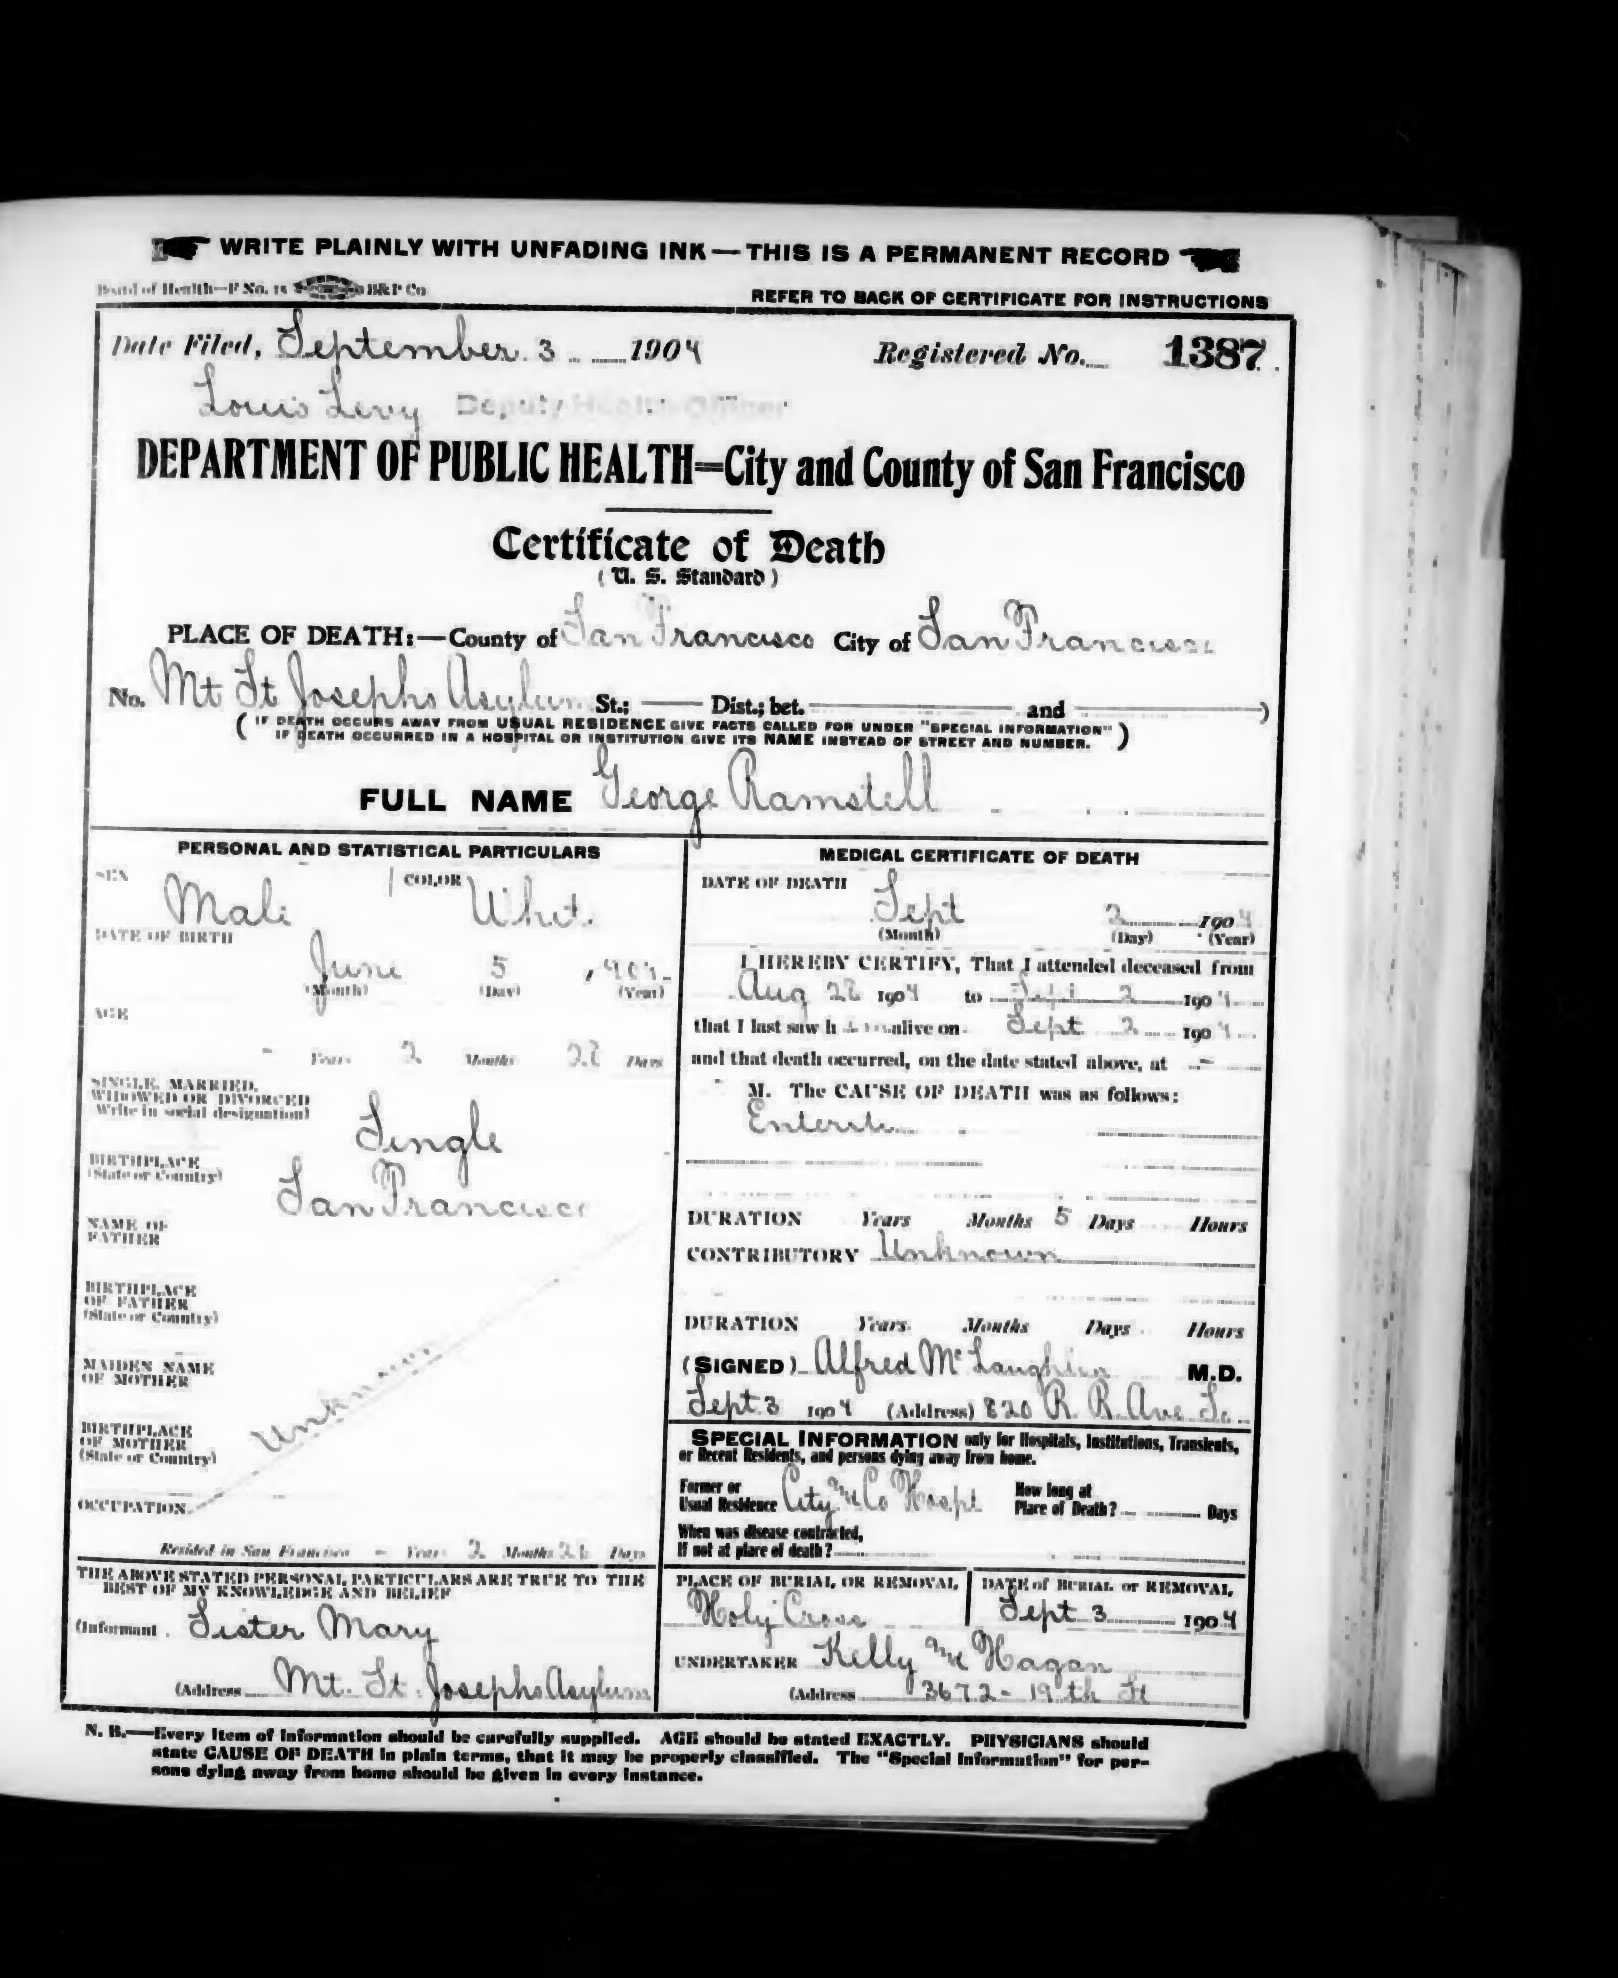 WRITE PLAINLY WITH UNFADING INK — THIS IS A PERMANENT RECORD
Board of Health—F No. 15 B&P Co
REFER TO BACK OF CERTIFICATE FOR INSTRUCTIONS
Date Filed, September 3 1904 Registered No. 1387
Louis Levy Deputy Health Officer
DEPARTMENT OF PUBLIC HEALTH=City and County of San Francisco
Certificate of Death
( U. S. Standard )
PLACE OF DEATH:—County of San Francisco City of San Francisco
No. Mt St Josephs Asylum St.; — Dist.; bet. — and — )
( IF DEATH OCCURS AWAY FROM USUAL RESIDENCE GIVE FACTS CALLED FOR UNDER "SPECIAL INFORMATION"
IF DEATH OCCURRED IN A HOSPITAL OR INSTITUTION GIVE ITS NAME INSTEAD OF STREET AND NUMBER. )
FULL NAME George Ramstell
PERSONAL AND STATISTICAL PARTICULARS
SEX Male COLOR White
DATE OF BIRTH
June 5
(Month) (Day) (Year)
AGE
- Years 2 Months 28 Days
SINGLE, MARRIED,
WIDOWED OR DIVORCED
Write in social designation)
Single
BIRTHPLACE
(State or Country)
San Francisco
NAME OF
FATHER
BIRTHPLACE
OF FATHER
(State or Country)
MAIDEN NAME
OF MOTHER
Unknown
BIRTHPLACE
OF MOTHER
(State or Country)
OCCUPATION
Resided in San Francisco - Years 2 Months 28 Days
THE ABOVE STATED PERSONAL PARTICULARS ARE TRUE TO THE
BEST OF MY KNOWLEDGE AND BELIEF
(Informant Sister Mary
(Address Mt. St. Josephs Asylum
MEDICAL CERTIFICATE OF DEATH
DATE OF DEATH
Sept 2 1904
(Month) (Day) (Year)
I HEREBY CERTIFY, That I attended deceased from
Aug 28 1904 to Sept 2 1904
that I last saw h im alive on Sept 2 1904
and that death occurred, on the date stated above, at -
M. The CAUSE OF DEATH was as follows:
Enteritis
DURATION Years Months 5 Days Hours
CONTRIBUTORY Unknown
DURATION Years Months Days Hours
(SIGNED) Alfred McLaughlin M.D.
Sept. 3 1904 (Address) 820 R. R. Ave So.
SPECIAL INFORMATION only for Hospitals, Institutions, Transients,
or Recent Residents, and persons dying away from home.
Former or
Usual Residence City and Co Hospt
How long at
Place of Death? Days
When was disease contracted,
If not at place of death?
PLACE OF BURIAL OR REMOVAL
Holy Cross
DATE of BURIAL or REMOVAL
Sept 3 1904
UNDERTAKER Kelly and Hagan
(Address 3672 - 19th St
N. B.—Every item of information should be carefully supplied. AGE should be stated EXACTLY. PHYSICIANS should
state CAUSE OF DEATH in plain terms, that it may be properly classified. The "Special Information" for per-
sons dying away from home should be given in every instance.